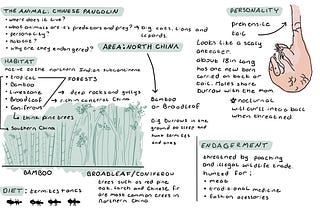 THE ANIMAL: CHINESE PANGOLIN
• where does it live?
• What animals are it's predators and prey? → Big cats, lions and leopards.
• personality?
• Habitat?
• why are they endangered?
AREA: NORTH CHINA
HABITAT
native to the northern Indian subcontinent
• tropical
• Bamboo
• Limestone
• Broadleaf
• Coniferous
FORESTS
→ deep rocks and gullys
→ rich in central China
→ china pine trees
→ Southern China
Bamboo or Broadleaf
Dig Burrows in the ground to sleep and hunt termites and ants
BAMBOO
BROADLEAF/CONIFEROU
trees such as red pine
oak, larch and Chinese fir
are most common trees in
northern China.
DIET: termites + ants
PERSONALITY
prehensile tail
Looks like a scaly
anteater.
about 18in long
has one new born
carried on back or
tail. Males share
burrow with the mom.
nocturnal
will curl into a ball
when threatened
ENDAGERMENT
threatened by poaching
and illegal wildlife trade
hunted for:
• meat
• traditional medicine
• fashion acessories